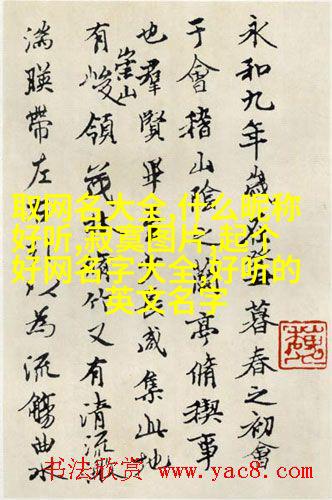 永和九年歲暮春之初會
于會稽山陰之蘭亭脩稧事
也羣賢畢咸集此地
有崇山峻領茂林脩竹又有清流激
湍暎帶左以為流觴曲水
取网名大全,什么昵称
好听,寂寞图片,起个
好网名字大全,好听的
英文名字
书法欣赏 www.yac8.com